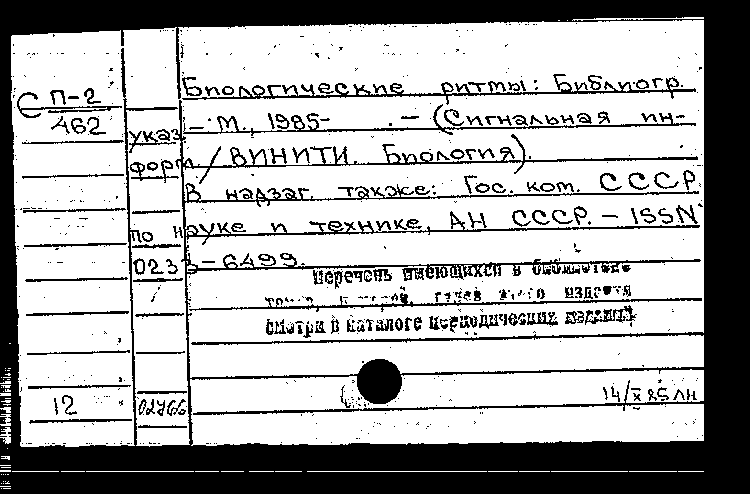 С П-2
462
Биологические ритмы: Библиогр.
указ. — М., 1985- . — (Сигнальная ин-
форм. / ВИНИТИ. Биология).
В надзаг. также: Гос. ком. СССР
по науке и технике, АН СССР. — ISSN
0233-6499.
Перечень имеющихся в библиотеке
томов,
издания
смотри в каталоге периодических изданий
12
14/X 85 ЛН